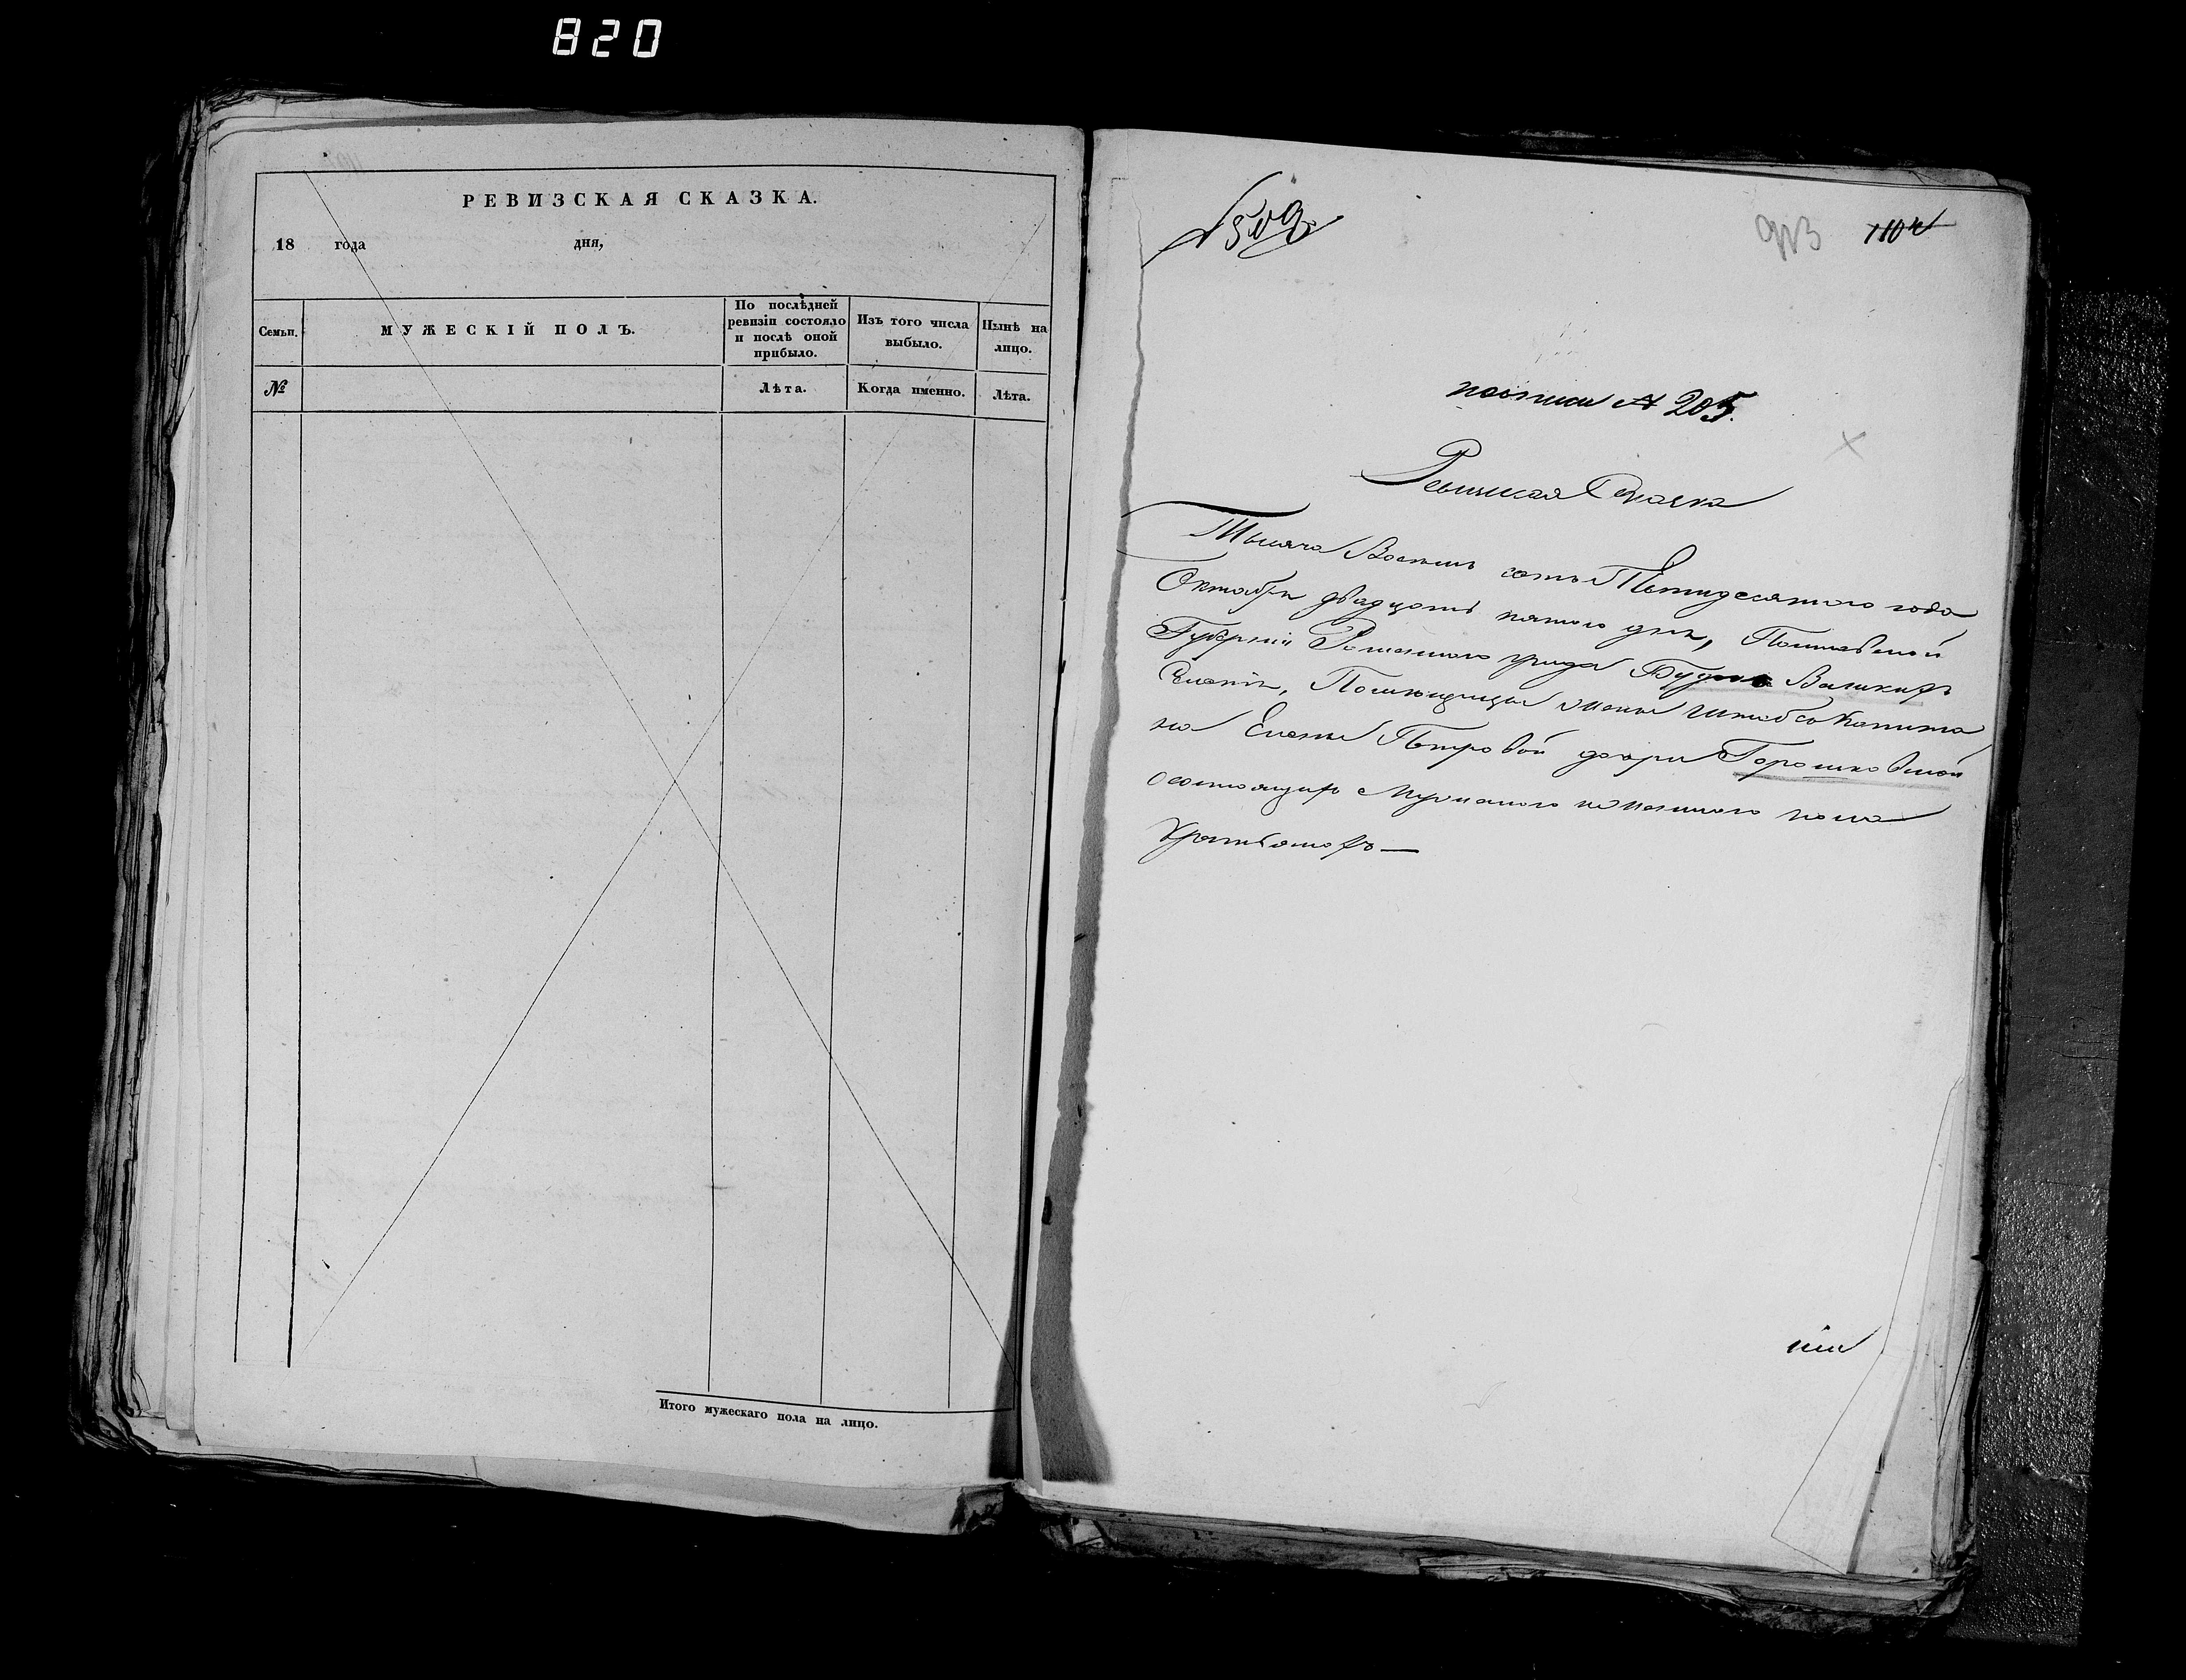 820
РЕВИЗСКАЯ СКАЗКА.
18 года дня,
Семьи. МУЖЕСКІЙ ПОЛЪ. По послѣдней ревизіи состояло и послѣ оной прибыло. Изъ того числа выбыло. Нынѣ на лицо.
№ Лѣта. Когда именно. Лѣта.
Итого мужескаго пола на лицо.
№ 209
913 1104
№ 205.
Ревизская Сказка
Тысяча Восемь сотъ Пятидесятого года
Октября двадцать пятого дня, Полтавской
Губерніи Роменского уѣзда
Селеніи, Помѣщицы жены Штабсъ Капита
на Елены Петровой дочери Горошковской
о состоящихъ Мужеского и женского пола
крестьянахъ —